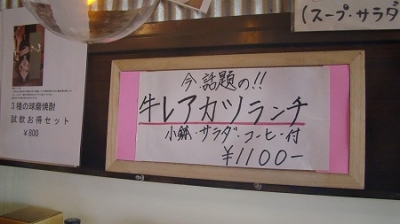 (スープ・サラダ
今、話題の!!
牛レアカツランチ
小鉢・サラダ・コーヒー付
¥1100-
3種の球磨焼酎
試飲お得セット
¥800